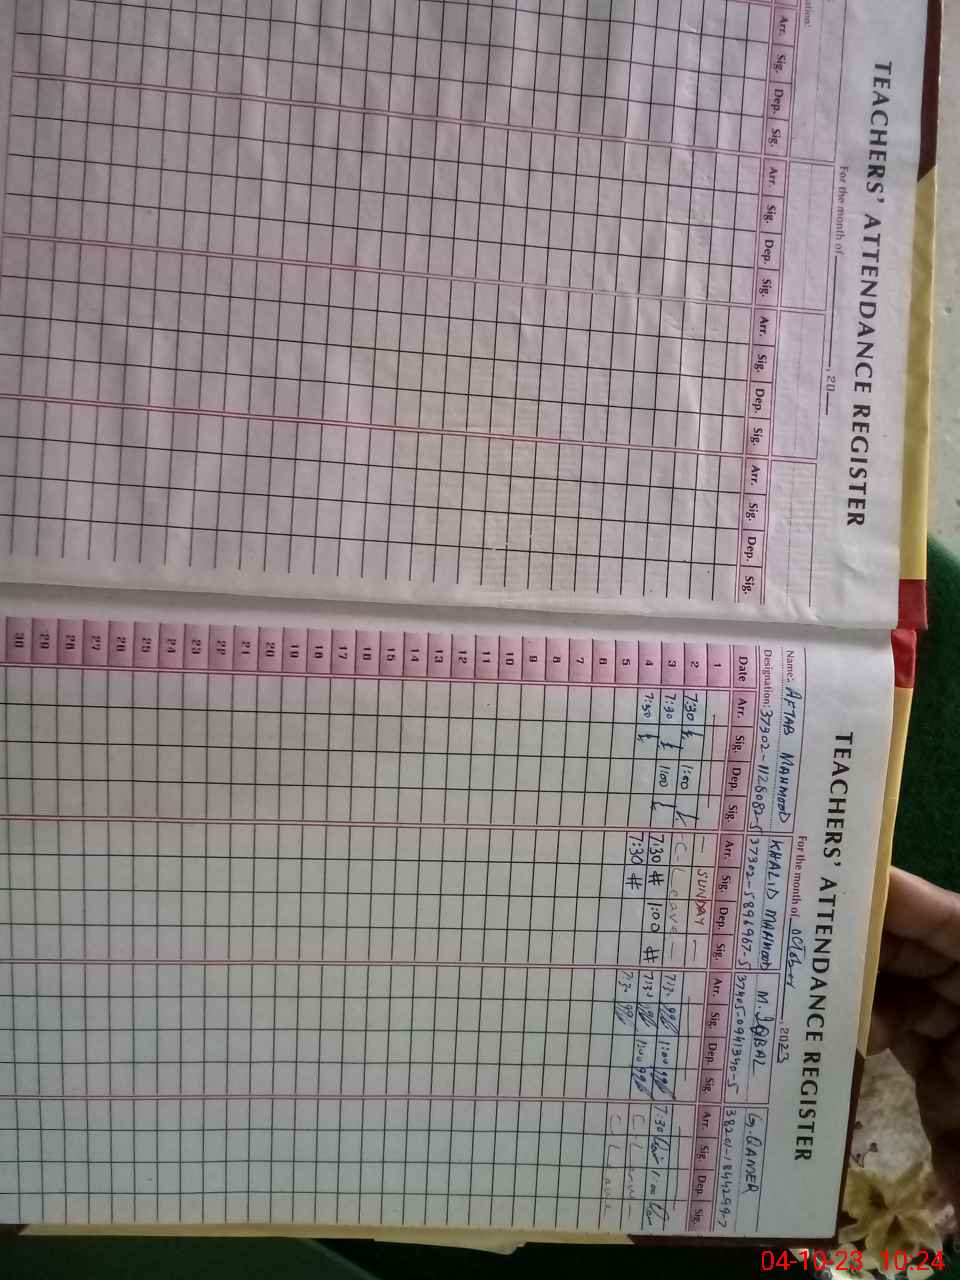 TEACHERS' ATTENDANCE REGISTER
For the month of , 20
Arr. Sig. Dep. Sig. Arr. Sig. Dep. Sig. Arr. Sig. Dep. Sig. Arr. Sig. Dep. Sig.
TEACHERS' ATTENDANCE REGISTER
For the month of October, 2023
Name:- AFTAB MAHMOOD KHALID MAHMOOD M. IQBAL G. QAMER
Designation: 37302-1126082-5 37302-5896967-5 37405-0941340-5 38201-1844299-7
Date Arr. Sig. Dep. Sig. Arr. Sig. Dep. Sig. Arr. Sig. Dep. Sig. Arr. Sig. Dep. Sig.
1 SUNDAY
2 7:30 1:00 C-Leave 7:30 1:00 7:30 1:00
3 7:30 1:00 7:30 1:00 7:30 1:00 C-Leave
4 7:30 7:30 7:30 C Leave
5
6
7
8
9
10
11
12
13
14
15
16
17
18
19
20
21
22
23
24
25
26
27
28
29
30
04-10-23 10:24